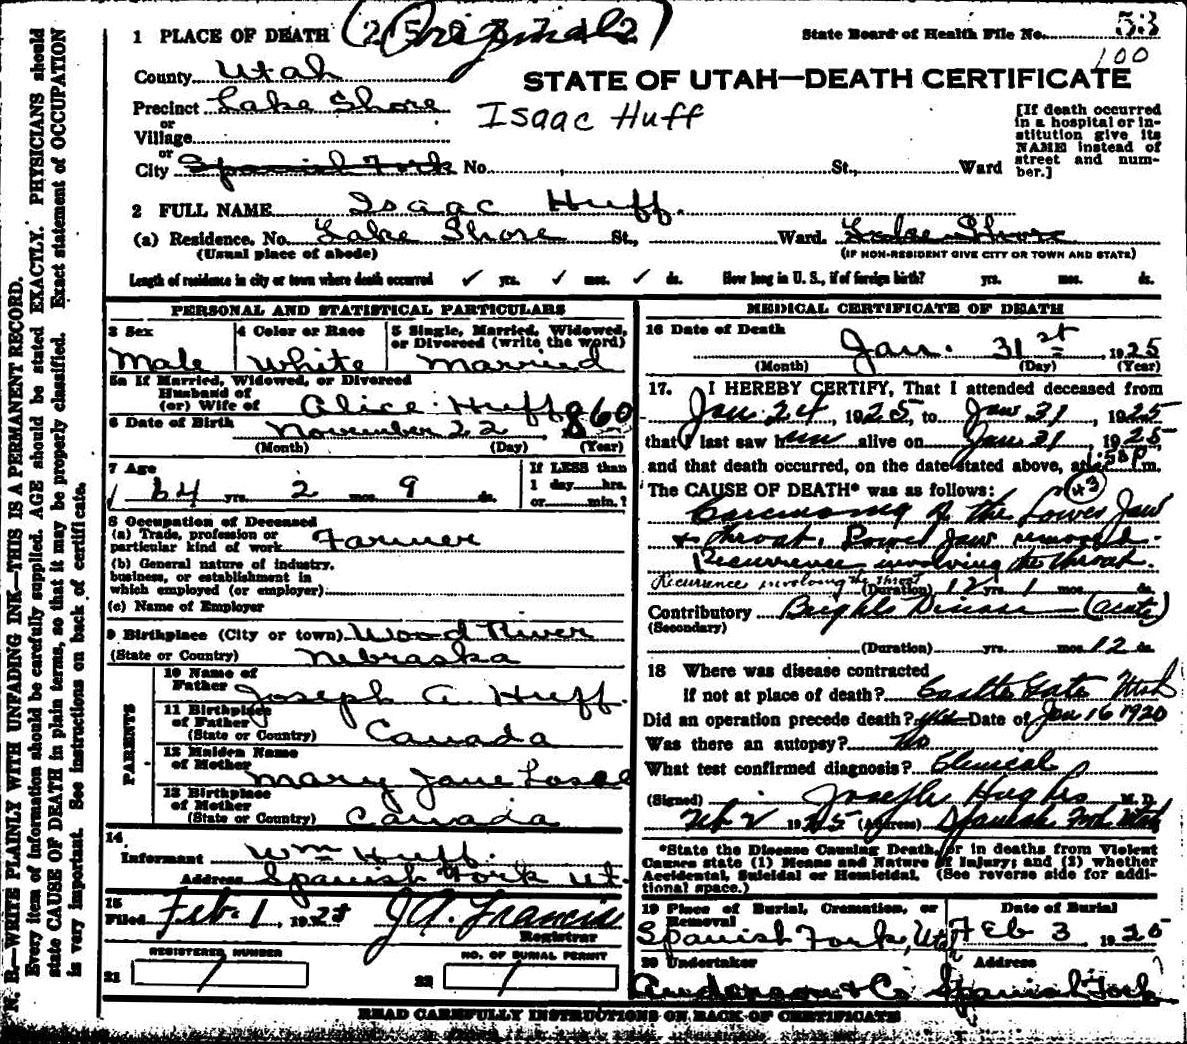 1 PLACE OF DEATH (Original) State Board of Health File No. 53
100
County Utah STATE OF UTAH—DEATH CERTIFICATE
Precinct Lake Shore Isaac Huff
or
Village
or
City Spanish Fork No. St., Ward
[If death occurred
in a hospital or in-
stitution give its
NAME instead of
street and num-
ber.]
2 FULL NAME Isaac Huff.
(a) Residence. No. Lake Shore St., Ward. Lake Shore
(Usual place of abode) (IF NON-RESIDENT GIVE CITY OR TOWN AND STATE)
Length of residence in city or town where death occurred ✓ yrs. ✓ mos. ✓ ds. How long in U. S., if of foreign birth? yrs. mos. ds.
PERSONAL AND STATISTICAL PARTICULARS
3 Sex 4 Color or Race 5 Single, Married, Widowed,
or Divorced (write the word)
Male White Married
5a If Married, Widowed, or Divorced
Husband of
(or) Wife of Alice Huff
6 Date of Birth November 22, 1860
(Month) (Day) (Year)
7 Age If LESS than
1 day hrs.
64 yrs. 2 mos. 9 ds. or min.?
8 Occupation of Deceased
(a) Trade, profession or
particular kind of work Farmer
(b) General nature of industry,
business, or establishment in
which employed (or employer)
(c) Name of Employer
9 Birthplace (City or town) Wood River
(State or Country) Nebraska
PARENTS
10 Name of
Father Joseph A. Huff.
11 Birthplace
of Father
(State or Country) Canada
12 Maiden Name
of Mother Mary Jane Losee
13 Birthplace
of Mother
(State or Country) Canada
14
Informant Wm Huff.
Address Spanish Fork Ut.
15
Filed Feb. 1, 1925 J A. Francis
Registrar
REGISTERED NUMBER NO. OF BURIAL PERMIT
21 1 22 1
MEDICAL CERTIFICATE OF DEATH
16 Date of Death
Jan. 31st, 1925
(Month) (Day) (Year)
17. I HEREBY CERTIFY, That I attended deceased from
Jan 24, 1925, to Jan 31, 1925
that I last saw him alive on Jan 31, 1925
and that death occurred, on the date stated above, at m.
The CAUSE OF DEATH* was as follows: 43
Carcinoma of the Lower Jaw
& throat. Lower Jaw removed.
Recurrence involving the throat.
Recurrence involving the throat (Duration) yrs. 1 mos. ds.
Contributory Brights Disease (acute)
(Secondary)
(Duration) yrs. mos. 12 ds.
18 Where was disease contracted
if not at place of death? Castle Gate Utah
Did an operation precede death? yes Date of Jan 16 1920
Was there an autopsy? No
What test confirmed diagnosis? Clinical
(Signed) Joseph Hughes M. D.
Feb 2 1925 (Address) Spanish Fork Utah
*State the Disease Causing Death, or in deaths from Violent
Causes state (1) Means and Nature of Injury; and (2) whether
Accidental, Suicidal or Homicidal. (See reverse side for addi-
tional space.)
19 Place of Burial, Cremation, or Date of Burial
Removal
Spanish Fork, Utah Feb 3 1925
20 Undertaker Address
Anderson & Co Spanish Fork
READ CAREFULLY INSTRUCTIONS ON BACK OF CERTIFICATE
N. B.—WRITE PLAINLY WITH UNFADING INK—THIS IS A PERMANENT RECORD.
Every item of information should be carefully supplied. AGE should be stated EXACTLY. PHYSICIANS should
state CAUSE OF DEATH in plain terms, so that it may be properly classified. Exact statement of OCCUPATION
is very important. See instructions on back of certificate.